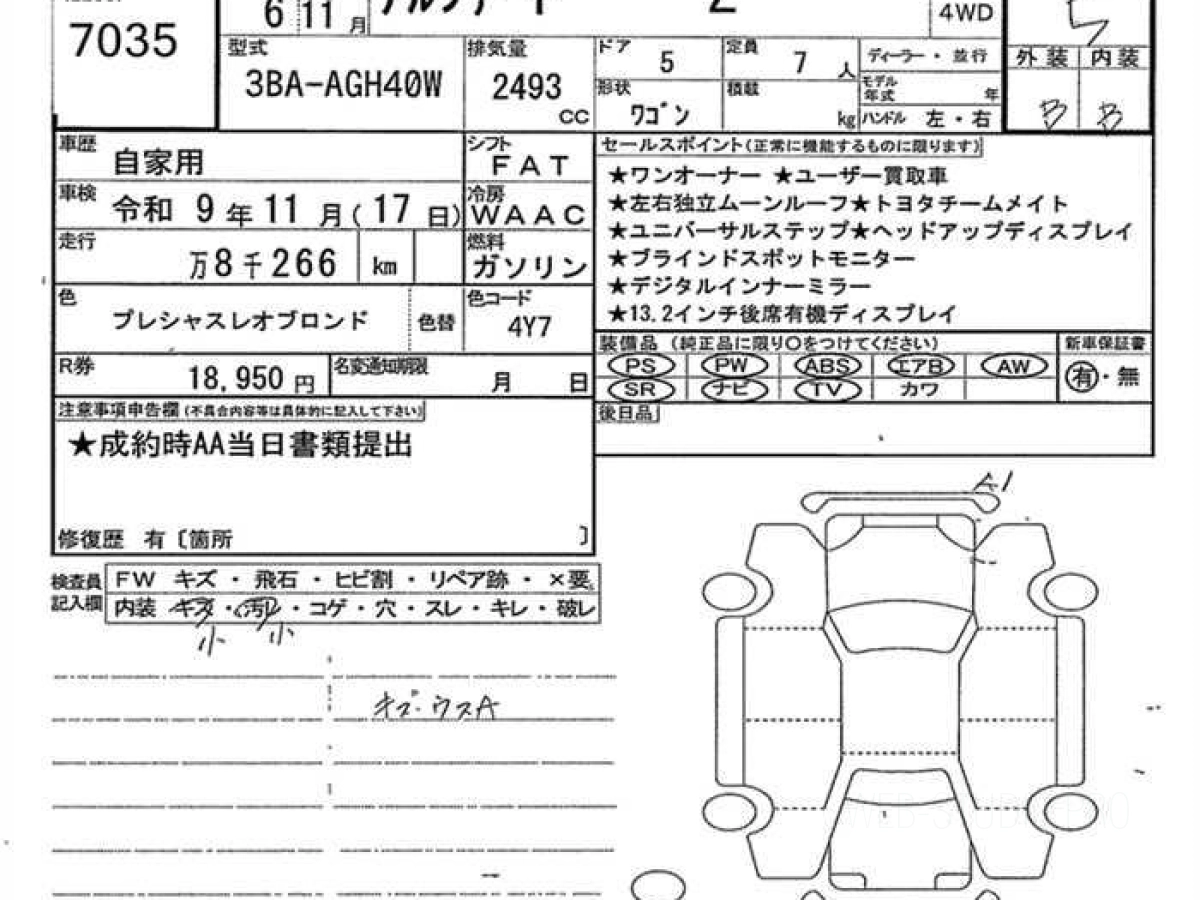 7035
6 11 月
4WD
5
型式
3BA-AGH40W
排気量
2493
CC
ドア
5
定員
7
人
ディーラー・並行
形状
ワゴン
積載
kg
モデル
年式
年
ハンドル 左・右
外装 内装
B B
車歴
自家用
シフト
FAT
車検
令和 9 年 11 月( 17 日)
冷房
WAAC
走行
万8千266 km
燃料
ガソリン
色
プレシャスレオブロンド
色替
色コード
4Y7
R券
18,950 円
名変通知期限
月 日
セールスポイント(正常に機能するものに限ります)
★ワンオーナー ★ユーザー買取車
★左右独立ムーンルーフ★トヨタチームメイト
★ユニバーサルステップ★ヘッドアップディスプレイ
★ブラインドスポットモニター
★デジタルインナーミラー
★13.2インチ後席有機ディスプレイ
装備品 (純正品に限り○をつけてください)
新車保証書
PS PW ABS エアB AW
SR ナビ TV カワ
有・無
後日品
注意事項申告欄(不具合内容等は具体的に記入して下さい)
★成約時AA当日書類提出
修復歴 有〔箇所 〕
検査員
記入欄
FW キズ・飛石・ヒビ割・リペア跡・×要
内装 キズ・汚レ・コゲ・穴・スレ・キレ・破レ
小 小
キズ・ウスA
A1